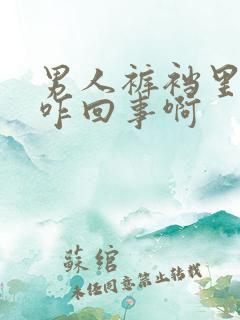 男人裤裆里
咋回事啊
苏绾
未经同意禁止转载